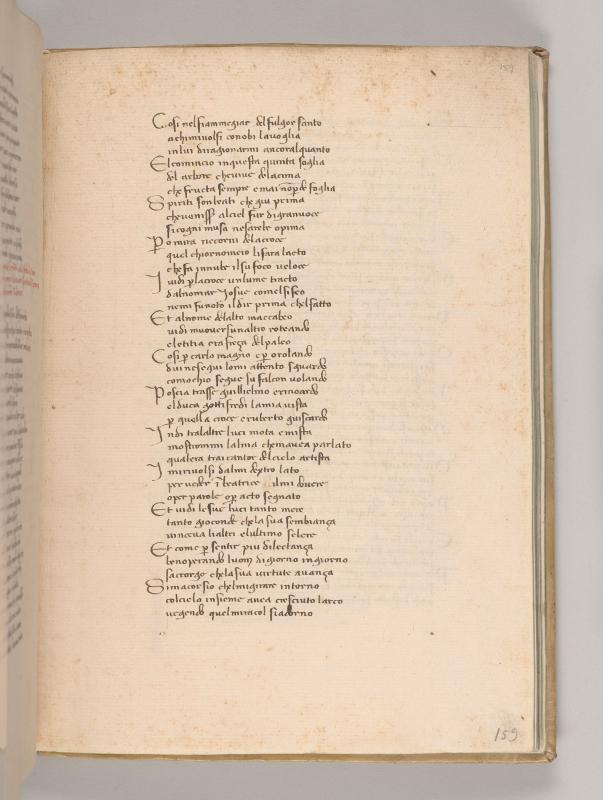 159
Cosi nelfiammegiar delfulgor santo
achimivolsi conobi lavoglia
inlui diragionarmi ancoralquanto
El comincio inquesta quinta soglia
del arbore chevive delacima
che fructa sempre e mai nō pde foglia
Spiriti son beati che giu prima
chevenissr alciel fur digranvoce
sicogni musa nesarebe opima
Po mira necorni delacroce
quel chiornomeio lifara lacto
chefa innube ilsu foco veloce
I vidi p lacroce unlume tracto
dalnomar Josue comelsifeo
nemi funoto ildir prima chelfatto
Et alnome delalto maccabeo
vidi muover sunaltro roteando
eletitia era freza del paleo
Cosi p carlo magno e p orolando
dui nesegui lomi attento sguardo
comochio segue su falcon volando
Poscia trasse guilhelmo erinoardo
elduca gottifredi lamia vista
p quella croce eruberto guiscardo
Indi tralaltre luci mota emista
mostrommi lalma chemavea parlato
qualera traicantor delcielo artista
I mirivolsi dalmi dextro lato
per veder ī beatrice ilmi dovere
oper parole op acto segnato
Et vidi lesue luci tanto mere
tanto gioconde chela sua sembianza
vinceva lialtri elultimo solere
Et come p sentir piu dilectanza
benoperando luom digiorno ingiorno
sacorge chelasua virtute avanza
Simacorsio chelmiogirare intorno
colcielo insieme avea cresciuto larco
vegendo quelmiracol siadorno
159